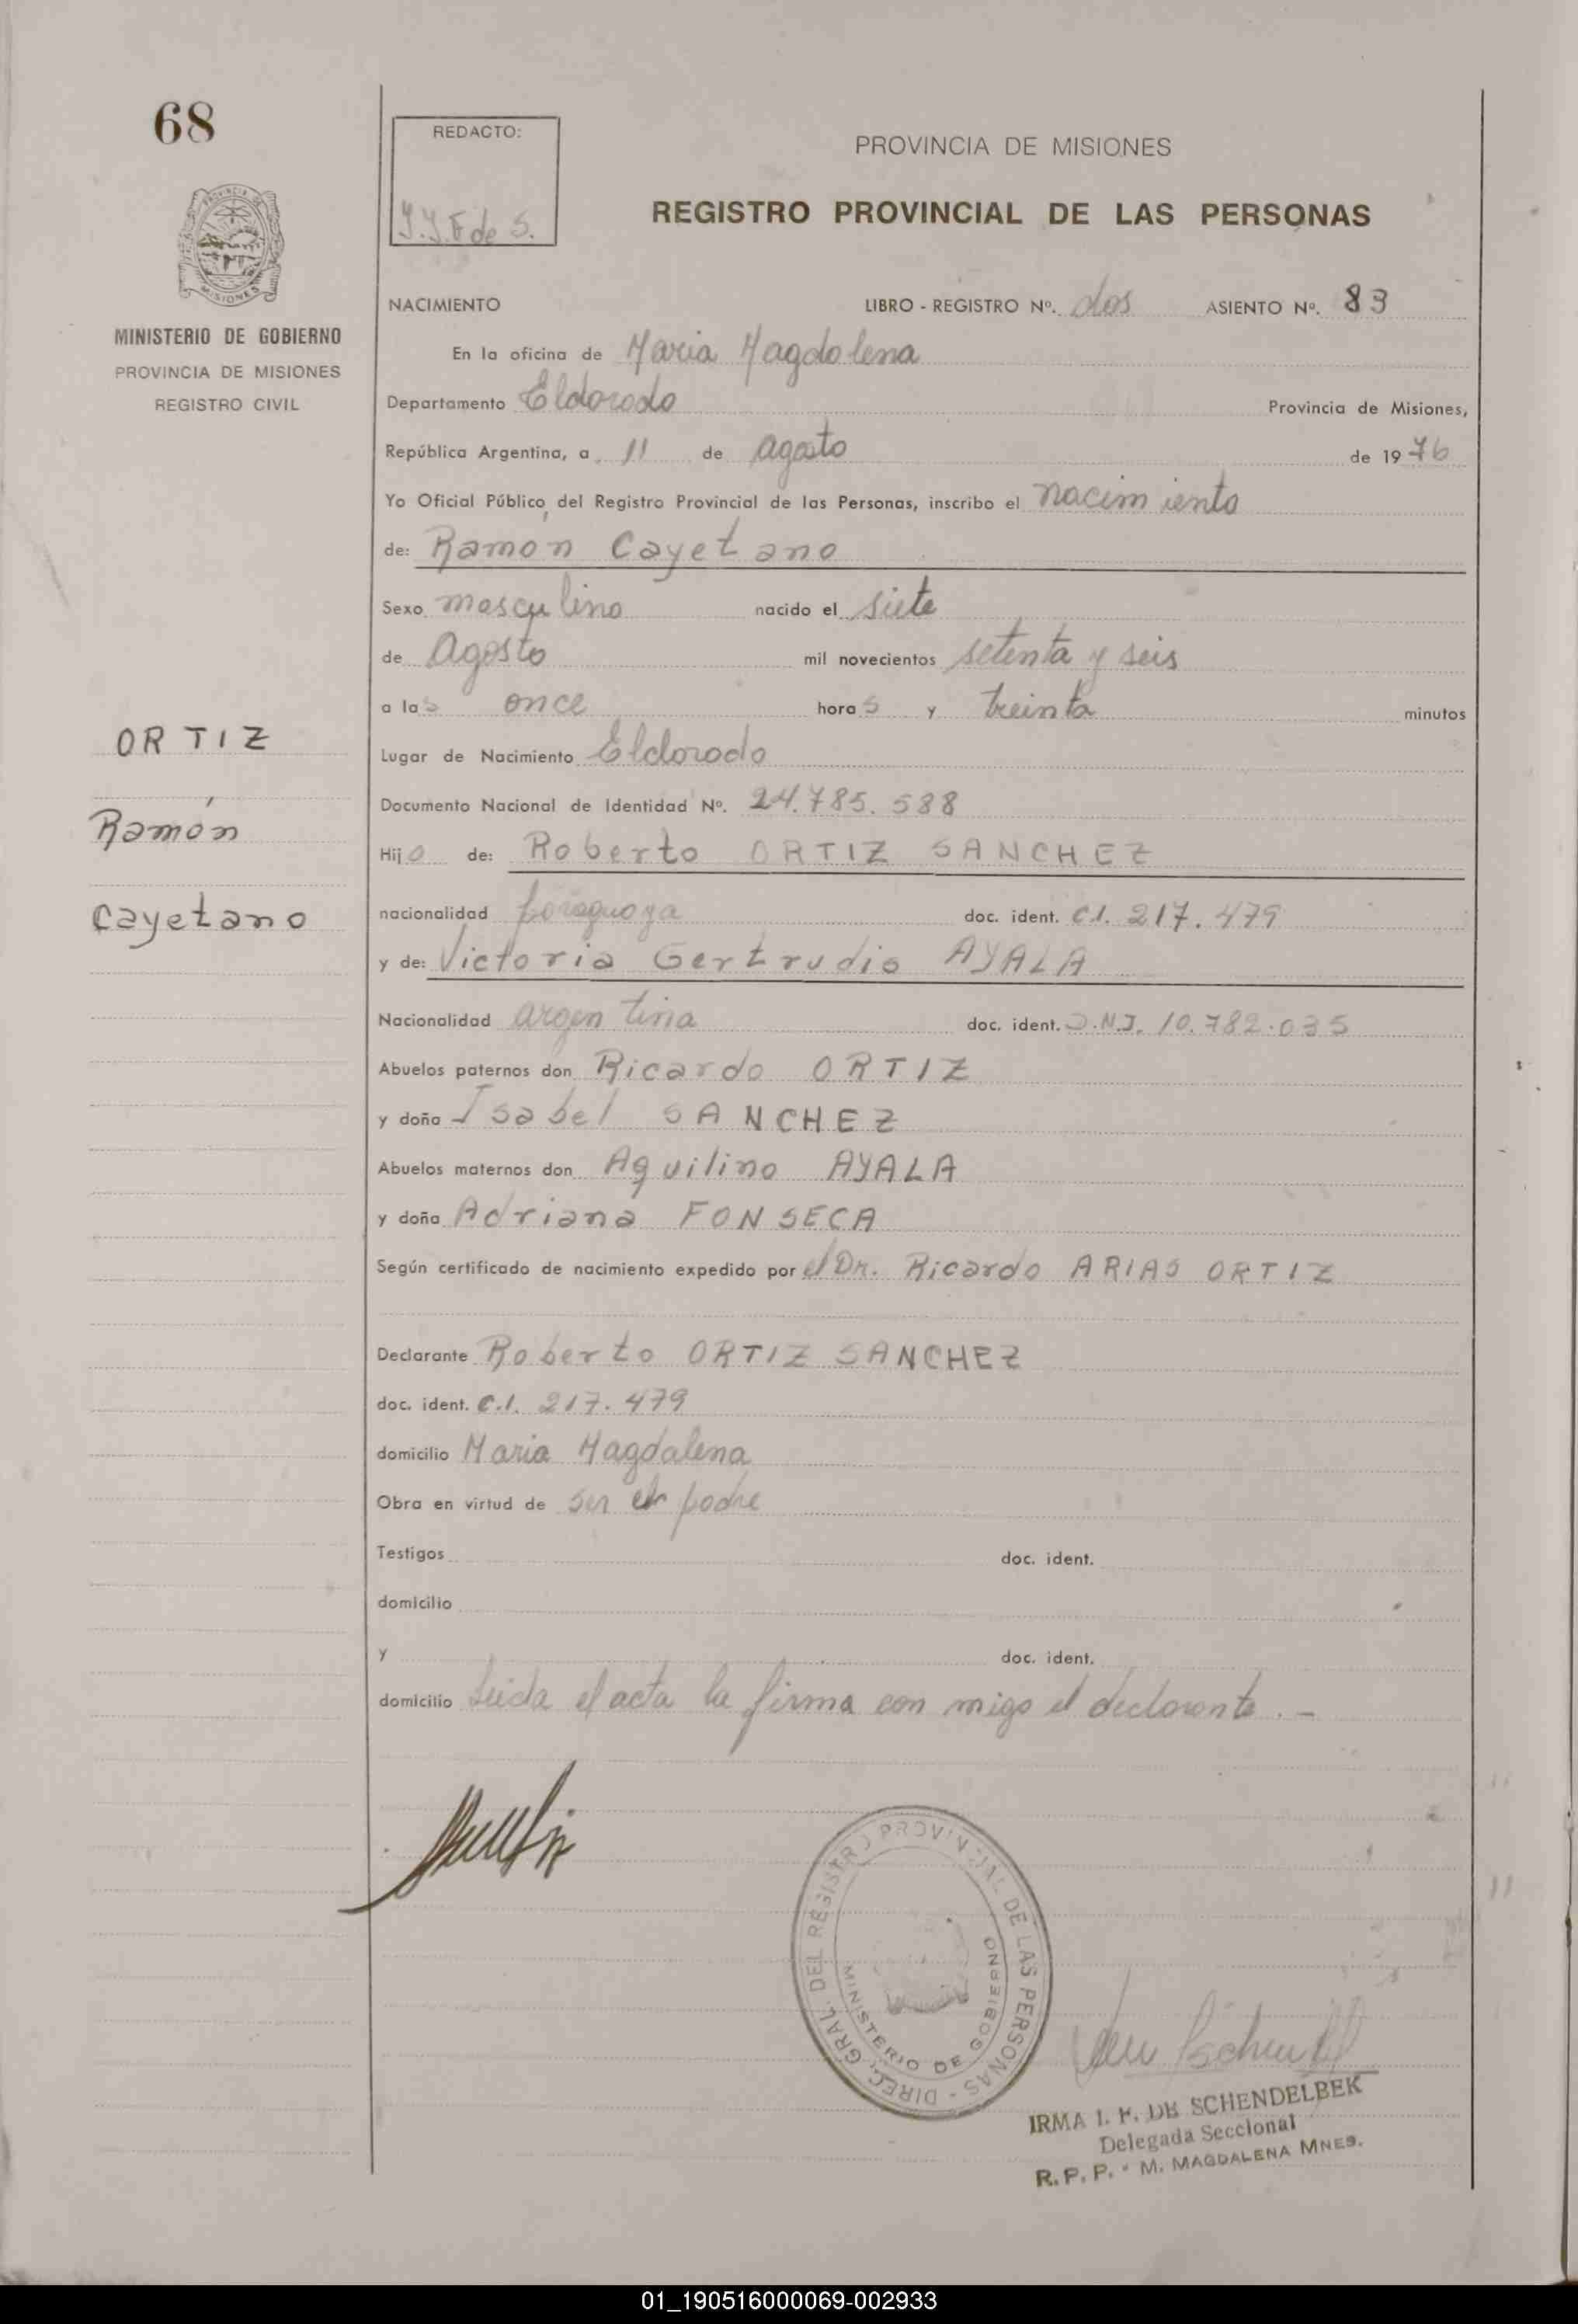 68
REDACTO:
PROVINCIA DE MISIONES
REGISTRO PROVINCIAL DE LAS PERSONAS
MINISTERIO DE GOBIERNO
PROVINCIA DE MISIONES
REGISTRO CIVIL
NACIMIENTO LIBRO - REGISTRO Nº. dos ASIENTO Nº. 83
En la oficina de Maria Magdalena
Departamento Eldorado Provincia de Misiones,
República Argentina, a 11 de agosto de 1976
Yo Oficial Público, del Registro Provincial de las Personas, inscribo el nacimiento
de: Ramon Cayetano
Sexo masculino nacido el siete
de Agosto mil novecientos setenta y seis
a las once horas y treinta minutos
Lugar de Nacimiento Eldorado
Documento Nacional de Identidad Nº. 24.785.588
Hijo de: Roberto ORTIZ SANCHEZ
nacionalidad paraguaya doc. ident. C.I. 217.479
y de: Victoria Gertrudis AYALA
Nacionalidad argentina doc. ident. D.N.I. 10.782.035
Abuelos paternos don Ricardo ORTIZ
y doña Isabel SANCHEZ
Abuelos maternos don Aquilino AYALA
y doña Adriana FONSECA
Según certificado de nacimiento expedido por el Dr. Ricardo ARIAS ORTIZ
Declarante Roberto ORTIZ SANCHEZ
doc. ident. C.I. 217.479
domicilio Maria Magdalena
Obra en virtud de ser el padre
Testigos doc. ident.
domicilio
y doc. ident.
domicilio Leida el acta la firma con migo el declarante.-
ORTIZ
Ramón
Cayetano
DIREC. GRAL. DEL REGISTRO PROVINCIAL DE LAS PERSONAS -
MINISTERIO DE GOBIERNO
IRMA I. F. DE SCHENDELBEK
Delegada Seccional
R. P. P. - M. MAGDALENA MNES.
01_190516000069-002933